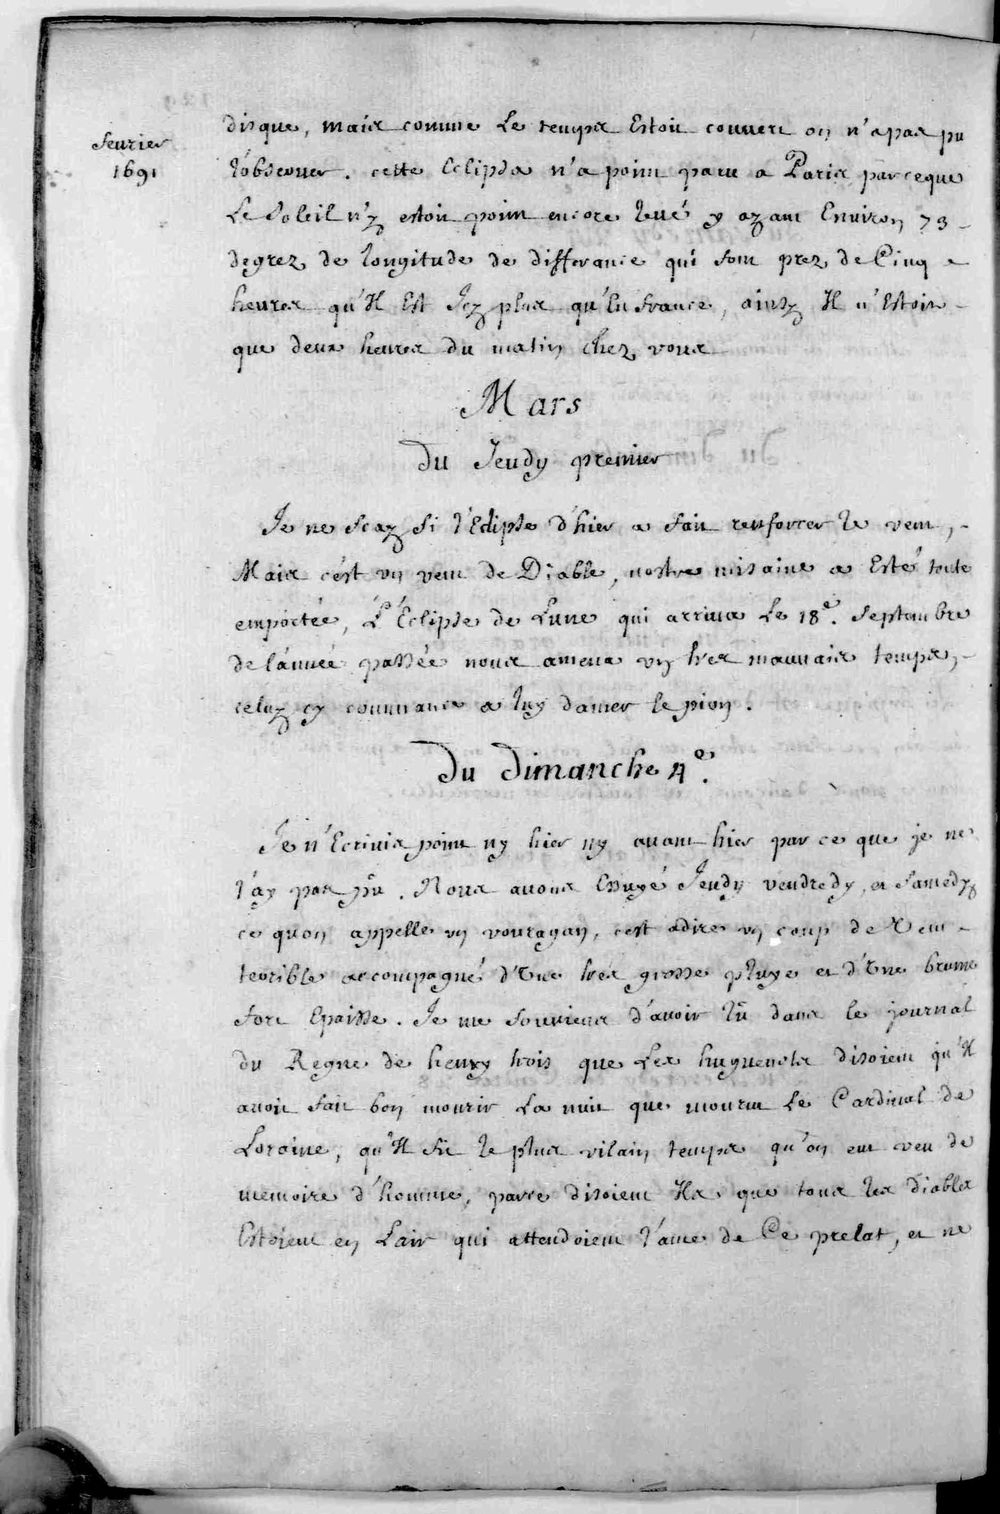 fevrier
1691
disque, mais comme le temps Estoit couvert on n'a pas pu
l'observer. cette Eclipse n'a point paru a Paris parce que
Le Soleil n'y estoit point encore levé y ayant Environ 73
degrez de longitude de differance qui font prez de Cinq
heures qu'Il Est Icy plus qu'En france, ainsy Il n'Estoit
que deux heures du matin chez vous
Mars
du Jeudy premier
Je ne scay si l'Eclipse d'hier a fait renforcer le vent,
Mais c'est un vent de Diable, nostre misaine a Esté toute
emportée, L'Eclipse de Lune qui arriva Le 18e. Septembre
de l'année passée nous amena un tres mauvais temps,
celuy cy commance a luy damer le pion.
du dimanche 4e.
Je n'Ecrivis point ny hier ny avant hier par ce que je ne
l'ay pas pû. Nous avons Essuyé Jeudy vendredy, et Samedy
ce qu'on appelle un vouragan, c'est adire un coup de Vent
terrible accompagné d'Une tres grosse pluye et d'Une brume
fort Epaisse. Je me souviens d'avoir lû dans le journal
du Regne de henry trois que Les huguenots disoient qu'Il
avoit fait bon mourir La nuit que mourut Le Cardinal de
Loraine, qu'Il fit le plus vilain temps qu'on eut veu de
memoire d'homme, parce disoient Ils que tous les diables
Estoient en L'air qui attendoient l'ame de Ce prelat, et ne